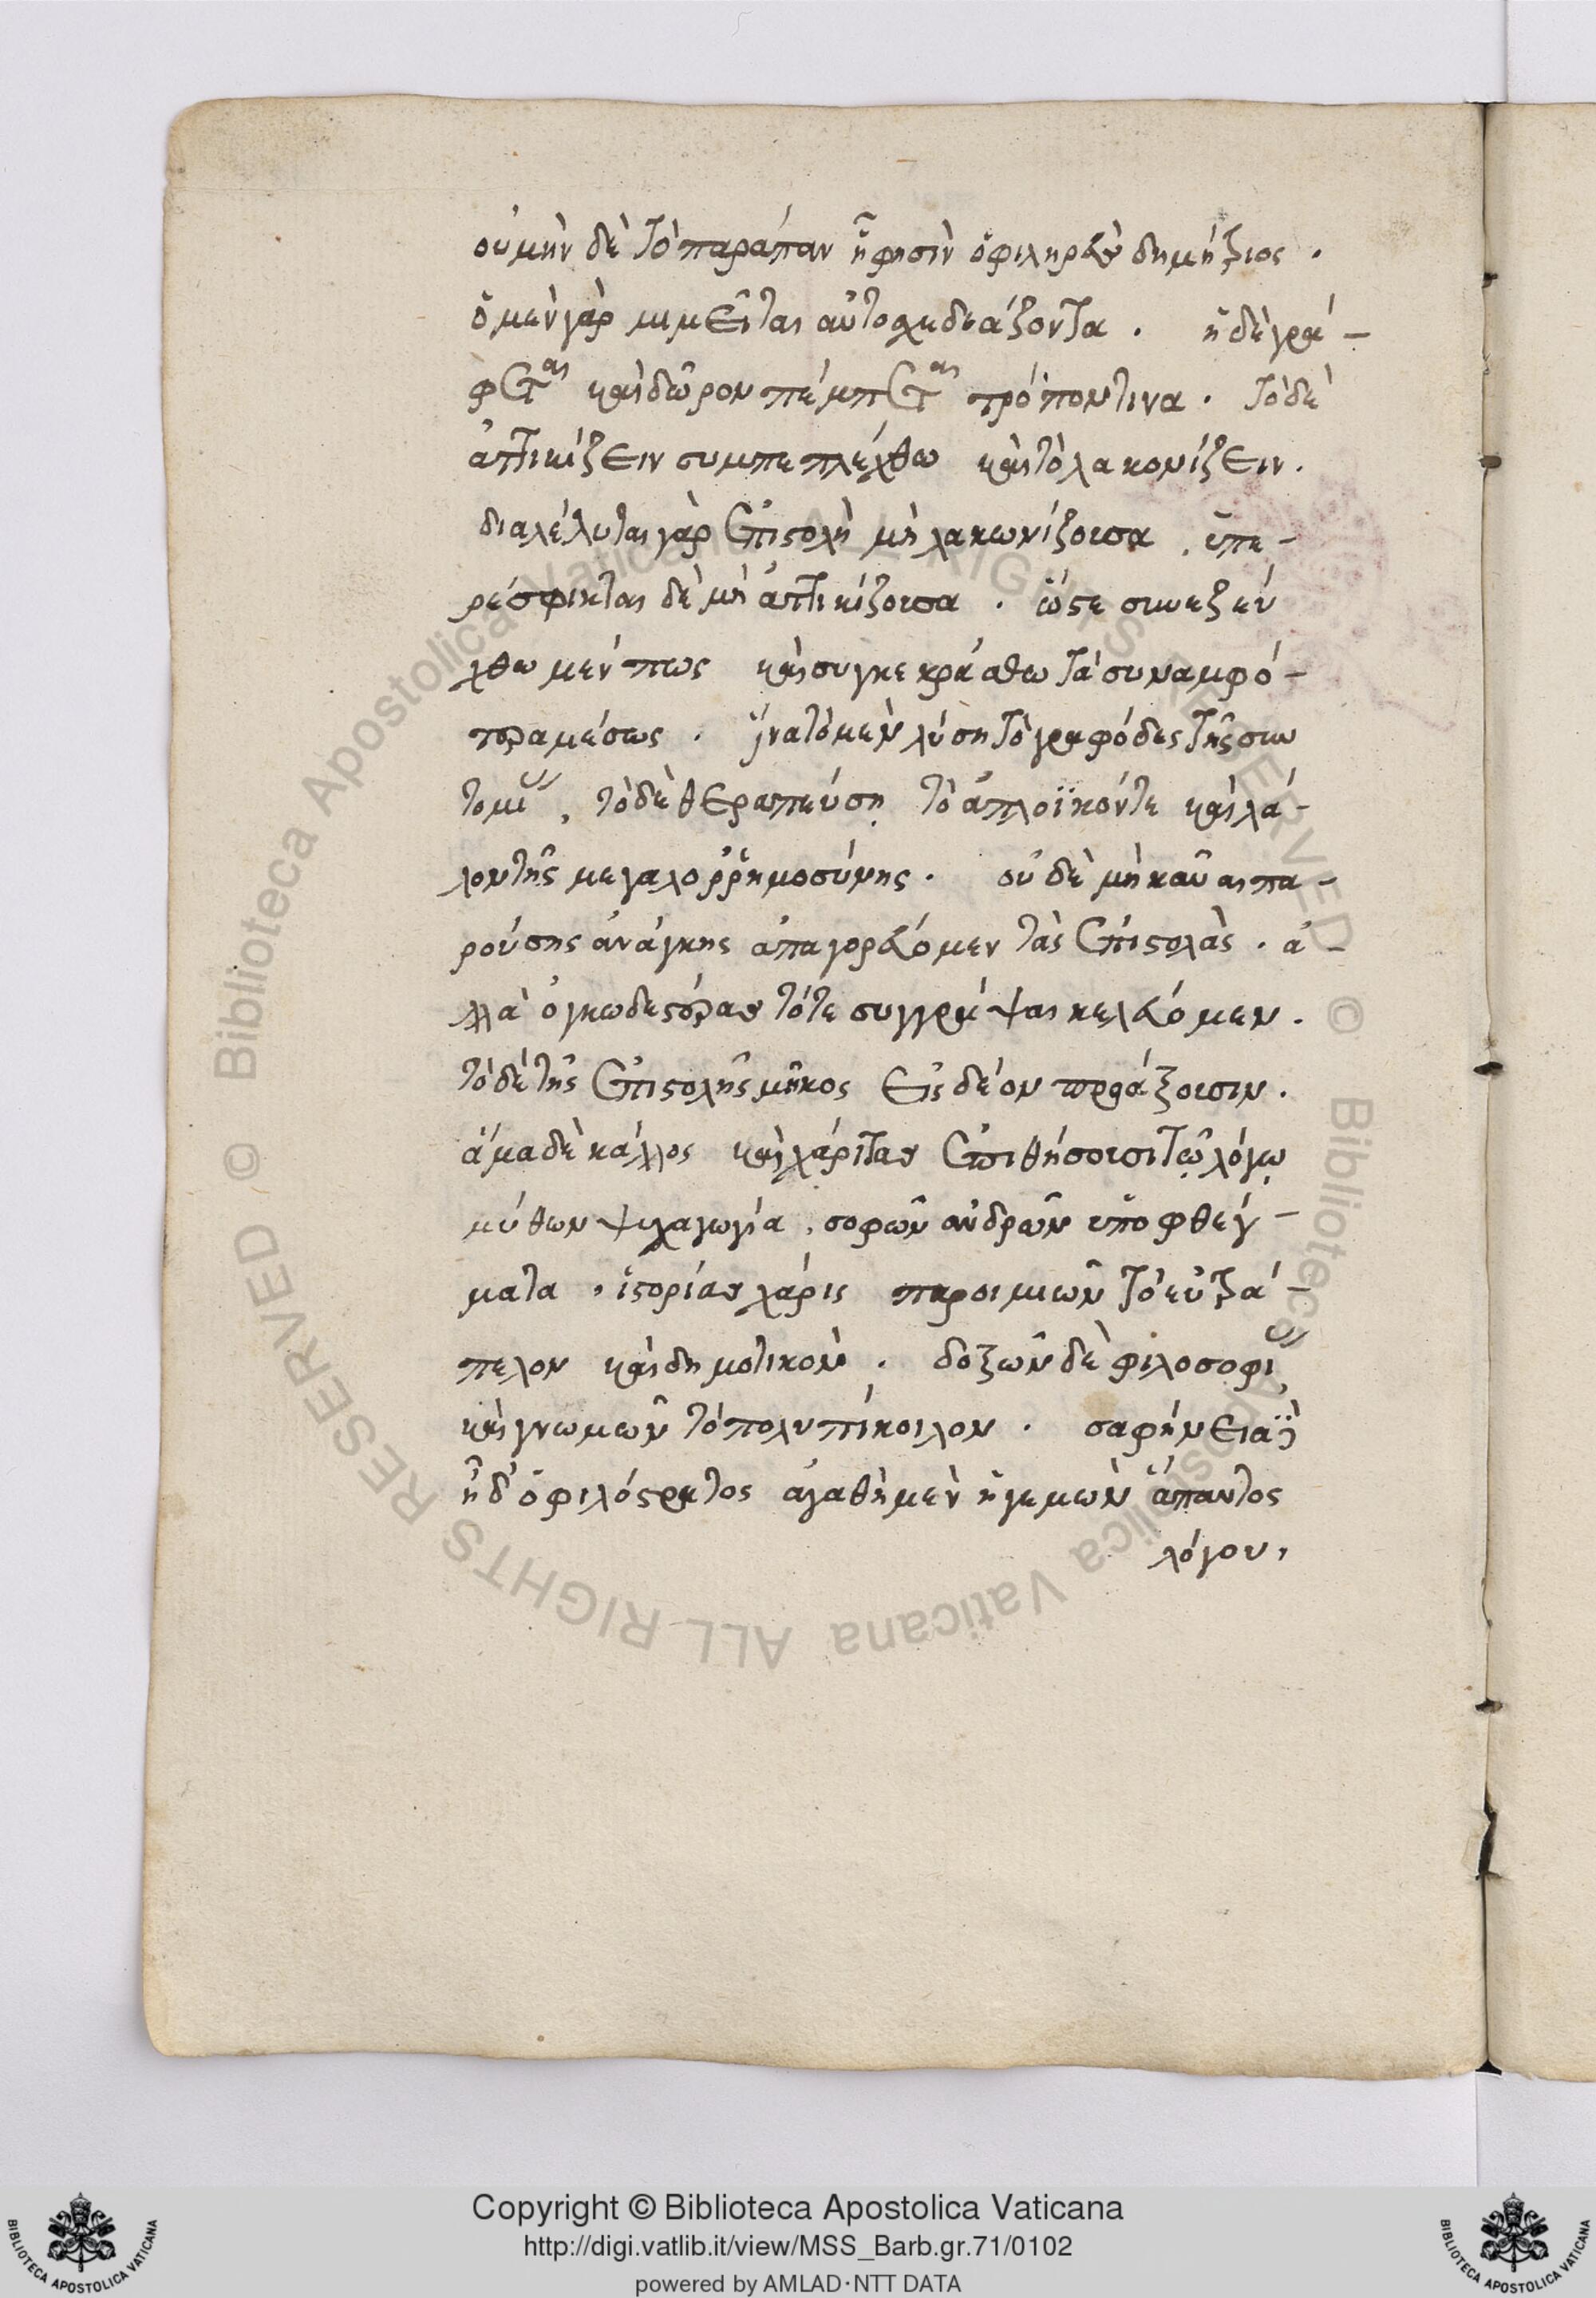 οὐ μὴν δὲ τὸ παράπαν ἧ φησὶν ὁ φαληρεὺς δημήτριος.
ὁ μὲν γὰρ μιμεῖται αὐτοσχεδιάζοντα. ἡ δὲ γρά-
φεται καὶ δῶρον πέμπεται τρόπον τινα. τὸ δὲ
ἀττικίζειν συμπεπλέχθω καὶ τὸ λακονίζειν.
διαλέλυται γὰρ ἐπιστολὴ μὴ λακωνίζουσα, ὑπε-
ρέσφικται δὲ μὴ ἀττικίζουσα. ὥστε συνεξεύ
χθω μέν πως καὶ συγκεκράσθω τὰ συναμφό-
τερα μέσως. ἵνα τὸ μὲν λύση τὸ γριφῶδες τῆς συν
τομί, τὸ δὲ θεραπεύσῃ τὸ ἁπλοϊκόν τε καὶ λά-
λον τῆς μεγαλορρημοσύνης. οὐ δὲ μὴ καὶ πα-
ρούσης ἀνάγκης ἀπαγορεύομεν τὰς ἐπιστολὰς. ἀ-
λλὰ ὀγκωδεστέρας τότε συγγράψαι κελεύομεν.
τὸ δὲ τῆς ἐπιστολῆς μῆκος εἰς δέον πράξουσιν.
ἅμα δὲ κάλλος καὶ χάριτας ἐπιθήσουσι τῷ λόγῳ
μύθων ψυχαγωγία, σοφῶν ἀνδρῶν ὑποφθέγ-
ματα, ἱστορίας χάρις παροιμιῶν τὸ εὐτρά-
πελον καὶ δημοτικὸν. δοξῶν δὲ φιλοσοφι
καὶ γνωμῶν τὸ πολυπίκοιλον. σαφήνεια δὲ
ἦ δ' ὁ φιλόστρατος ἀγαθὴ μὲν ἡγεμὼν ἅπαντος
λόγου,
Copyright © Biblioteca Apostolica Vaticana
http://digi.vatlib.it/view/MSS_Barb.gr.71/0102
powered by AMLAD·NTT DATA
BIBLIOTECA APOSTOLICA VATICANA
BIBLIOTECA APOSTOLICA VATICANA
© Biblioteca Apostolica Vaticana ALL RIGHTS RESERVED
© Biblioteca Apostolica Vaticana ALL RIGHTS RESERVED